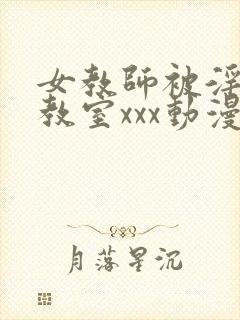 女教師被淫
教室xxx動漫
月落星沉